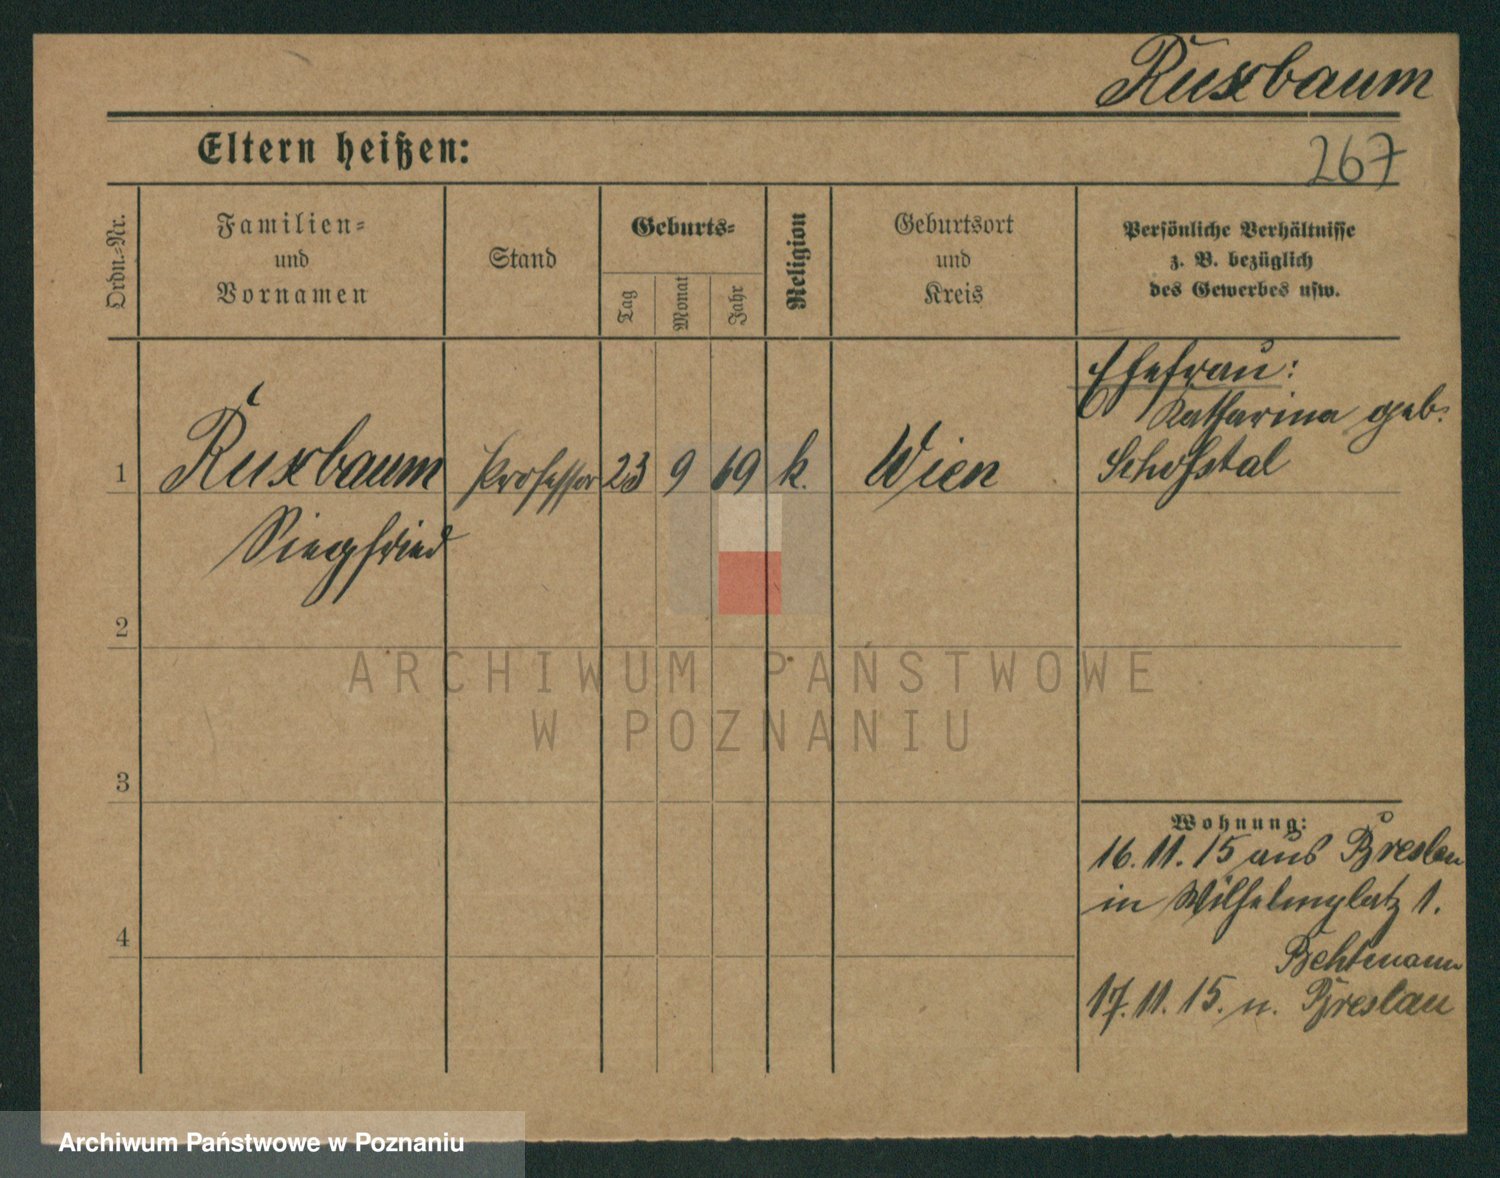 Ruxbaum
Eltern heißen:
267
Ordn.-Nr.
Familien-
und
Vornamen
Stand
Geburts-
Tag
Monat
Jahr
Religion
Geburtsort
und
Kreis
Persönliche Verhältnisse
z. B. bezüglich
des Gewerbes usw.
1
Ruxbaum
Siegfried
Professor
23
9
69
k.
Wien
Ehefrau:
Katharina geb.
2
3
4
Wohnung:
16.11.15 aus Breslau
in Wilhelmplatz 1.
17.11.15. n. Breslau
ARCHIWUM PAŃSTWOWE
W POZNANIU
Archiwum Państwowe w Poznaniu